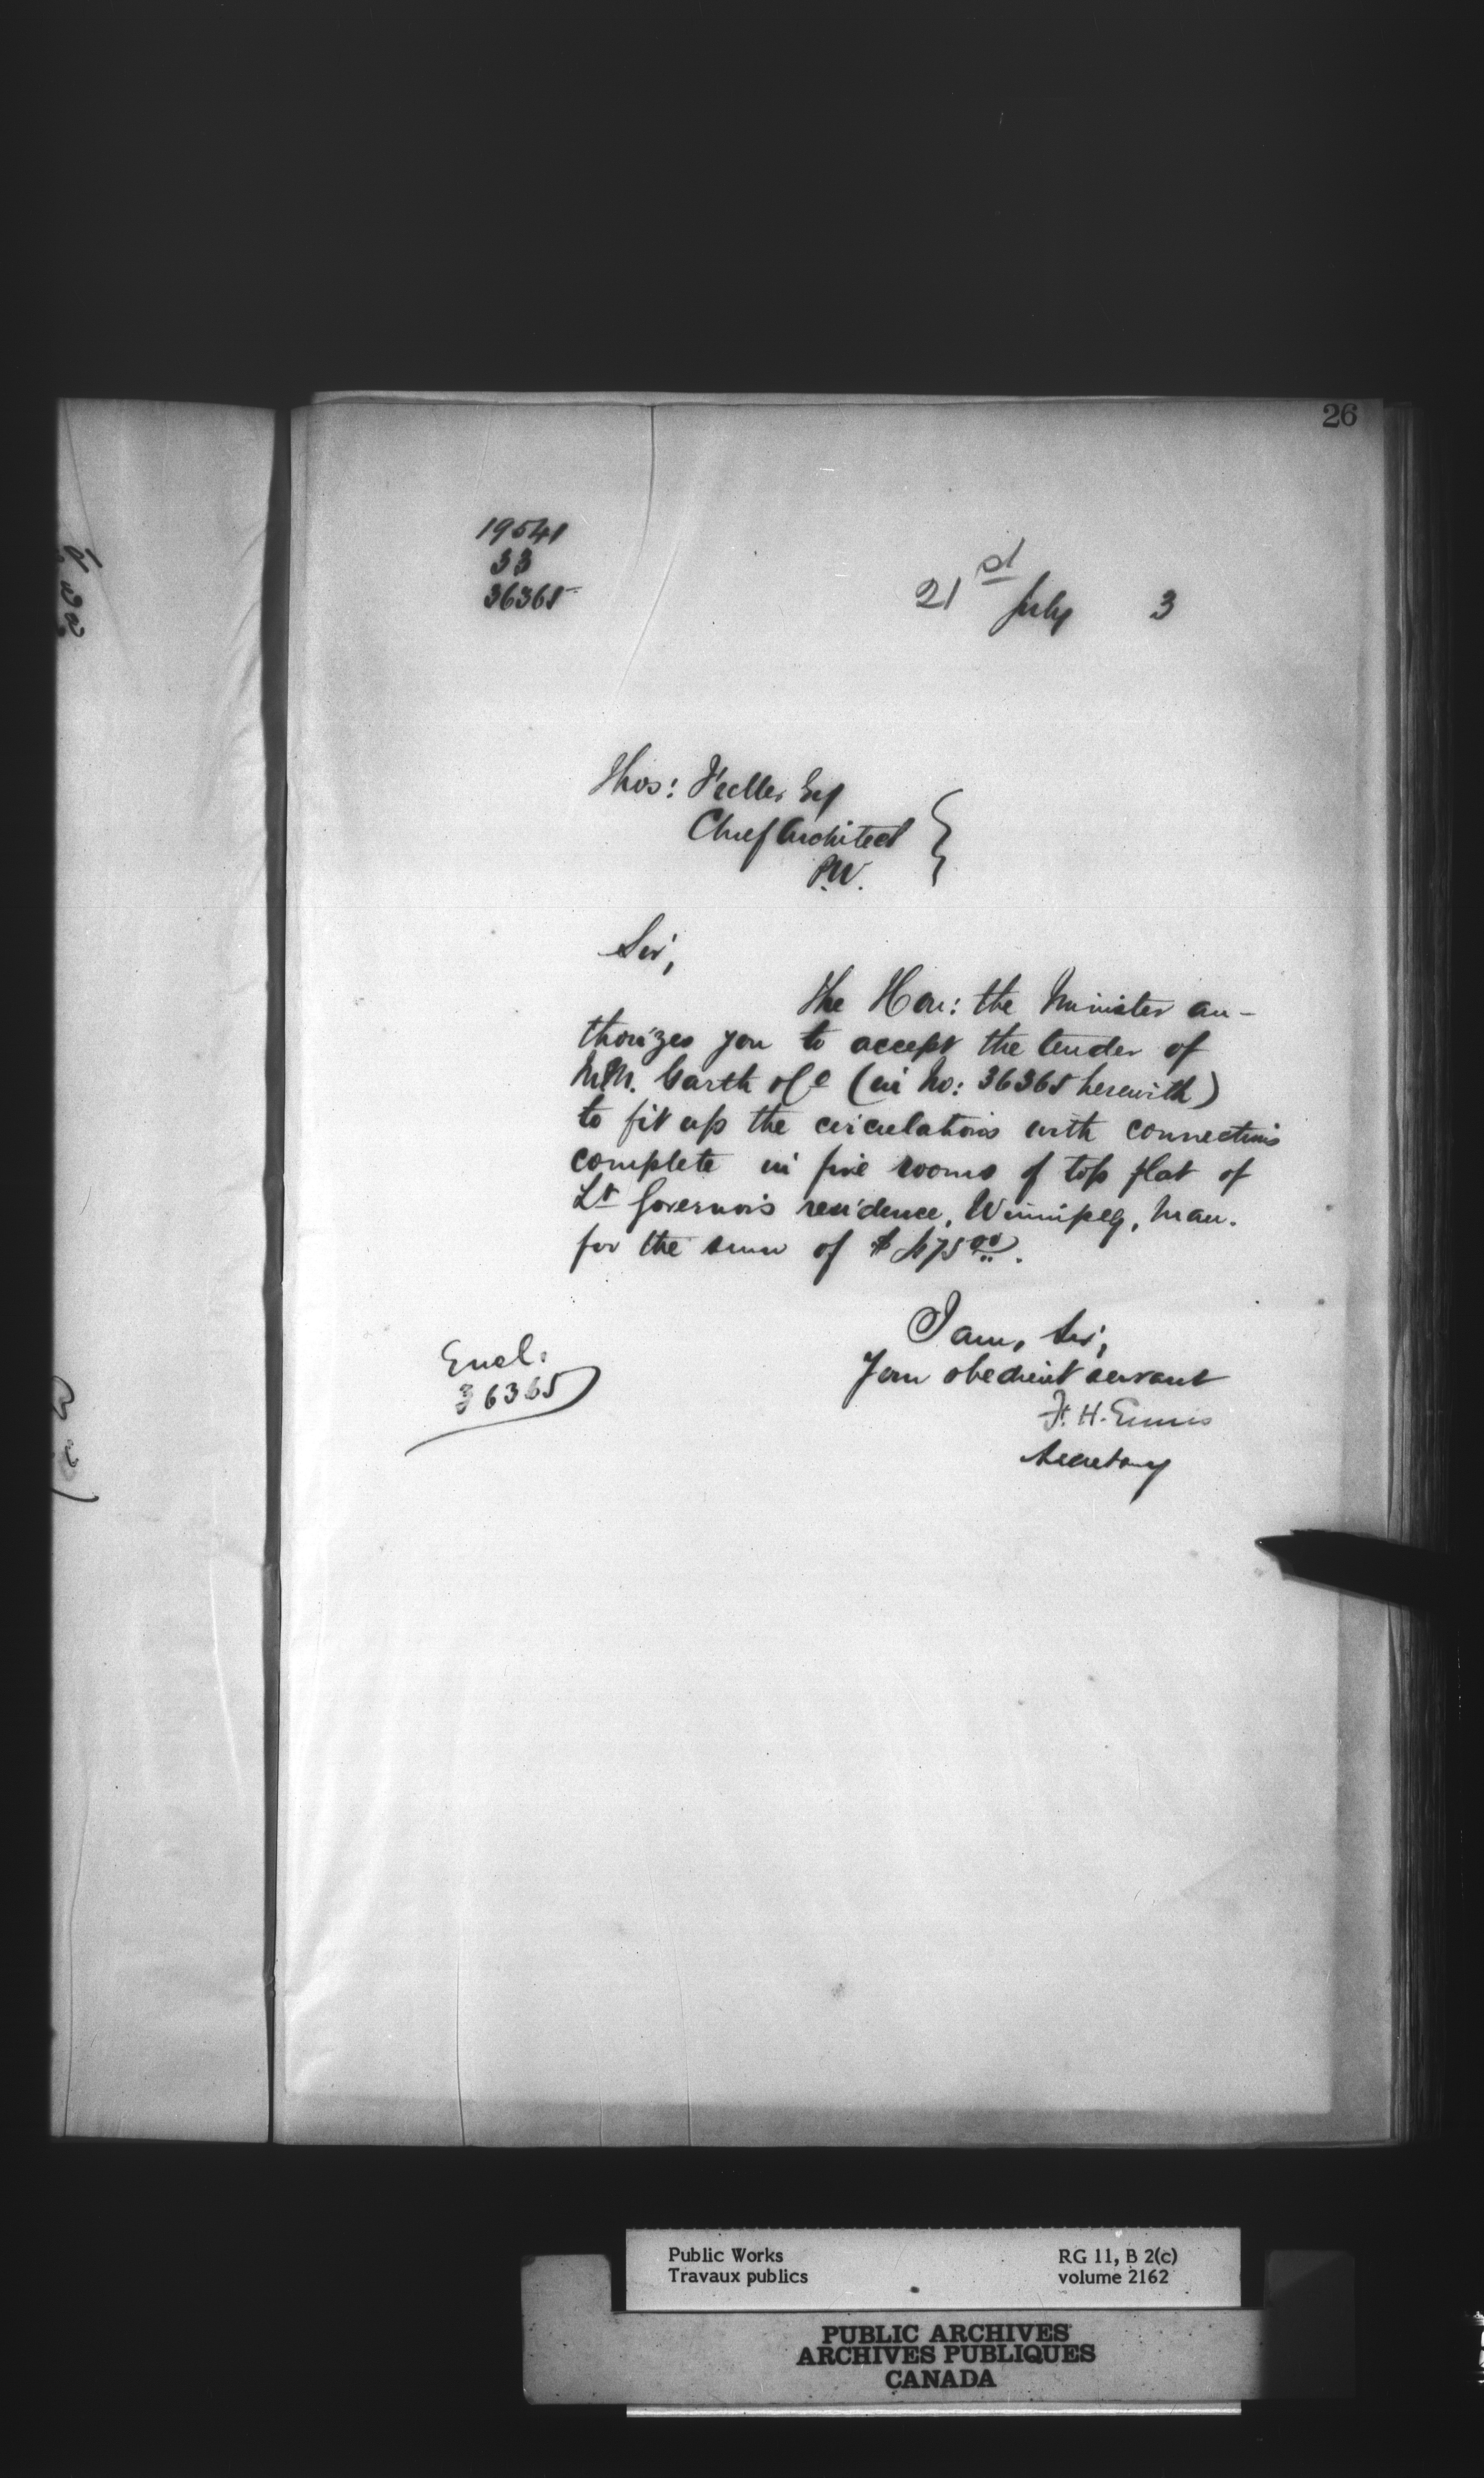 26
19541
33
36365
21st July 3
Thos: Fuller Esq
Chief Architect
P.W.
Sir,
The Hon: the Minister au-
thorizes you to accept the tender of
MM. Garth & Co (in No: 36365 herewith)
to fit up the circulations with connections
complete in five rooms of top flat of
Lt Governor's residence, Winnipeg, Man.
for the sum of $475.00.
I am, Sir,
Your obedient servant
F. H. Ennis
Secretary
Encl.
36365
Public Works
Travaux publics
RG 11, B 2(c)
volume 2162
PUBLIC ARCHIVES
ARCHIVES PUBLIQUES
CANADA